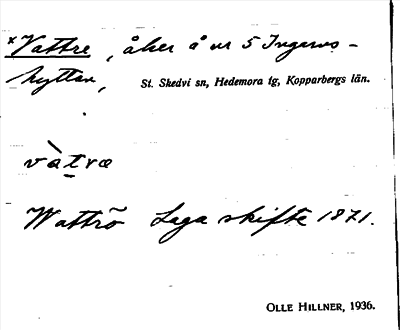 *Vattre, åker å nr 5 Ingervs-
hyttan,
St. Skedvi sn, Hedemora tg, Kopparbergs län.
vàtræ
Wattrõ Laga skifte 1871.
OLLE HILLNER, 1936.